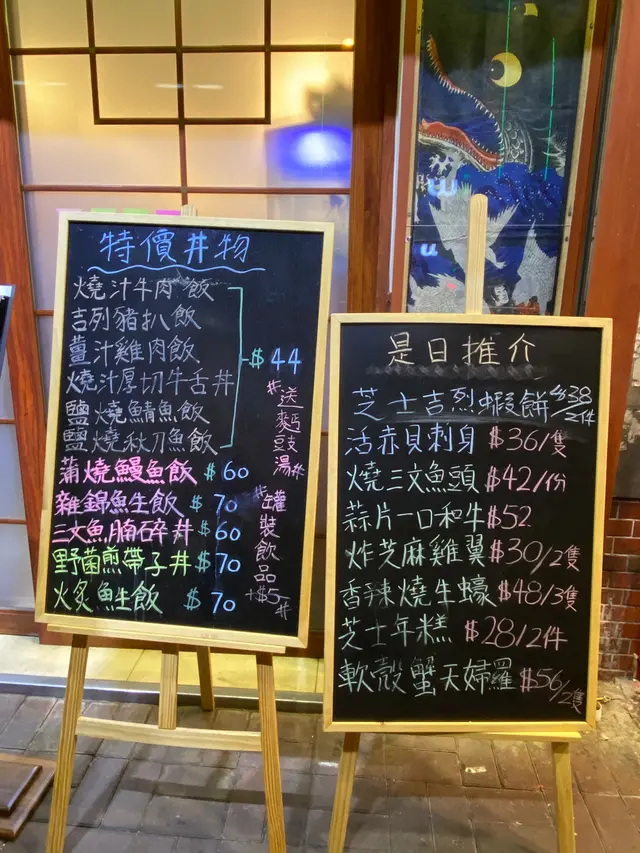 特價丼物
燒汁牛肉飯
吉列豬扒飯
薑汁雞肉飯
燒汁厚切牛舌丼
鹽燒鯖魚飯
鹽燒秋刀魚飯
$44
蒲燒鰻魚飯 $60
雜錦魚生飯 $70
三文魚腩碎丼 $60
野菌煎帶子丼 $70
火炙魚生飯 $70
#送麵豉湯#
#罐裝飲品+$5#
是日推介
芝士吉烈蝦餅 $38/2件
活赤貝刺身 $36/隻
燒三文魚頭 $42/份
蒜片一口和牛 $52
炸芝麻雞翼 $30/2隻
香辣燒牛蠔 $48/3隻
芝士年糕 $28/2件
軟殼蟹天婦羅 $56/2隻
w
u